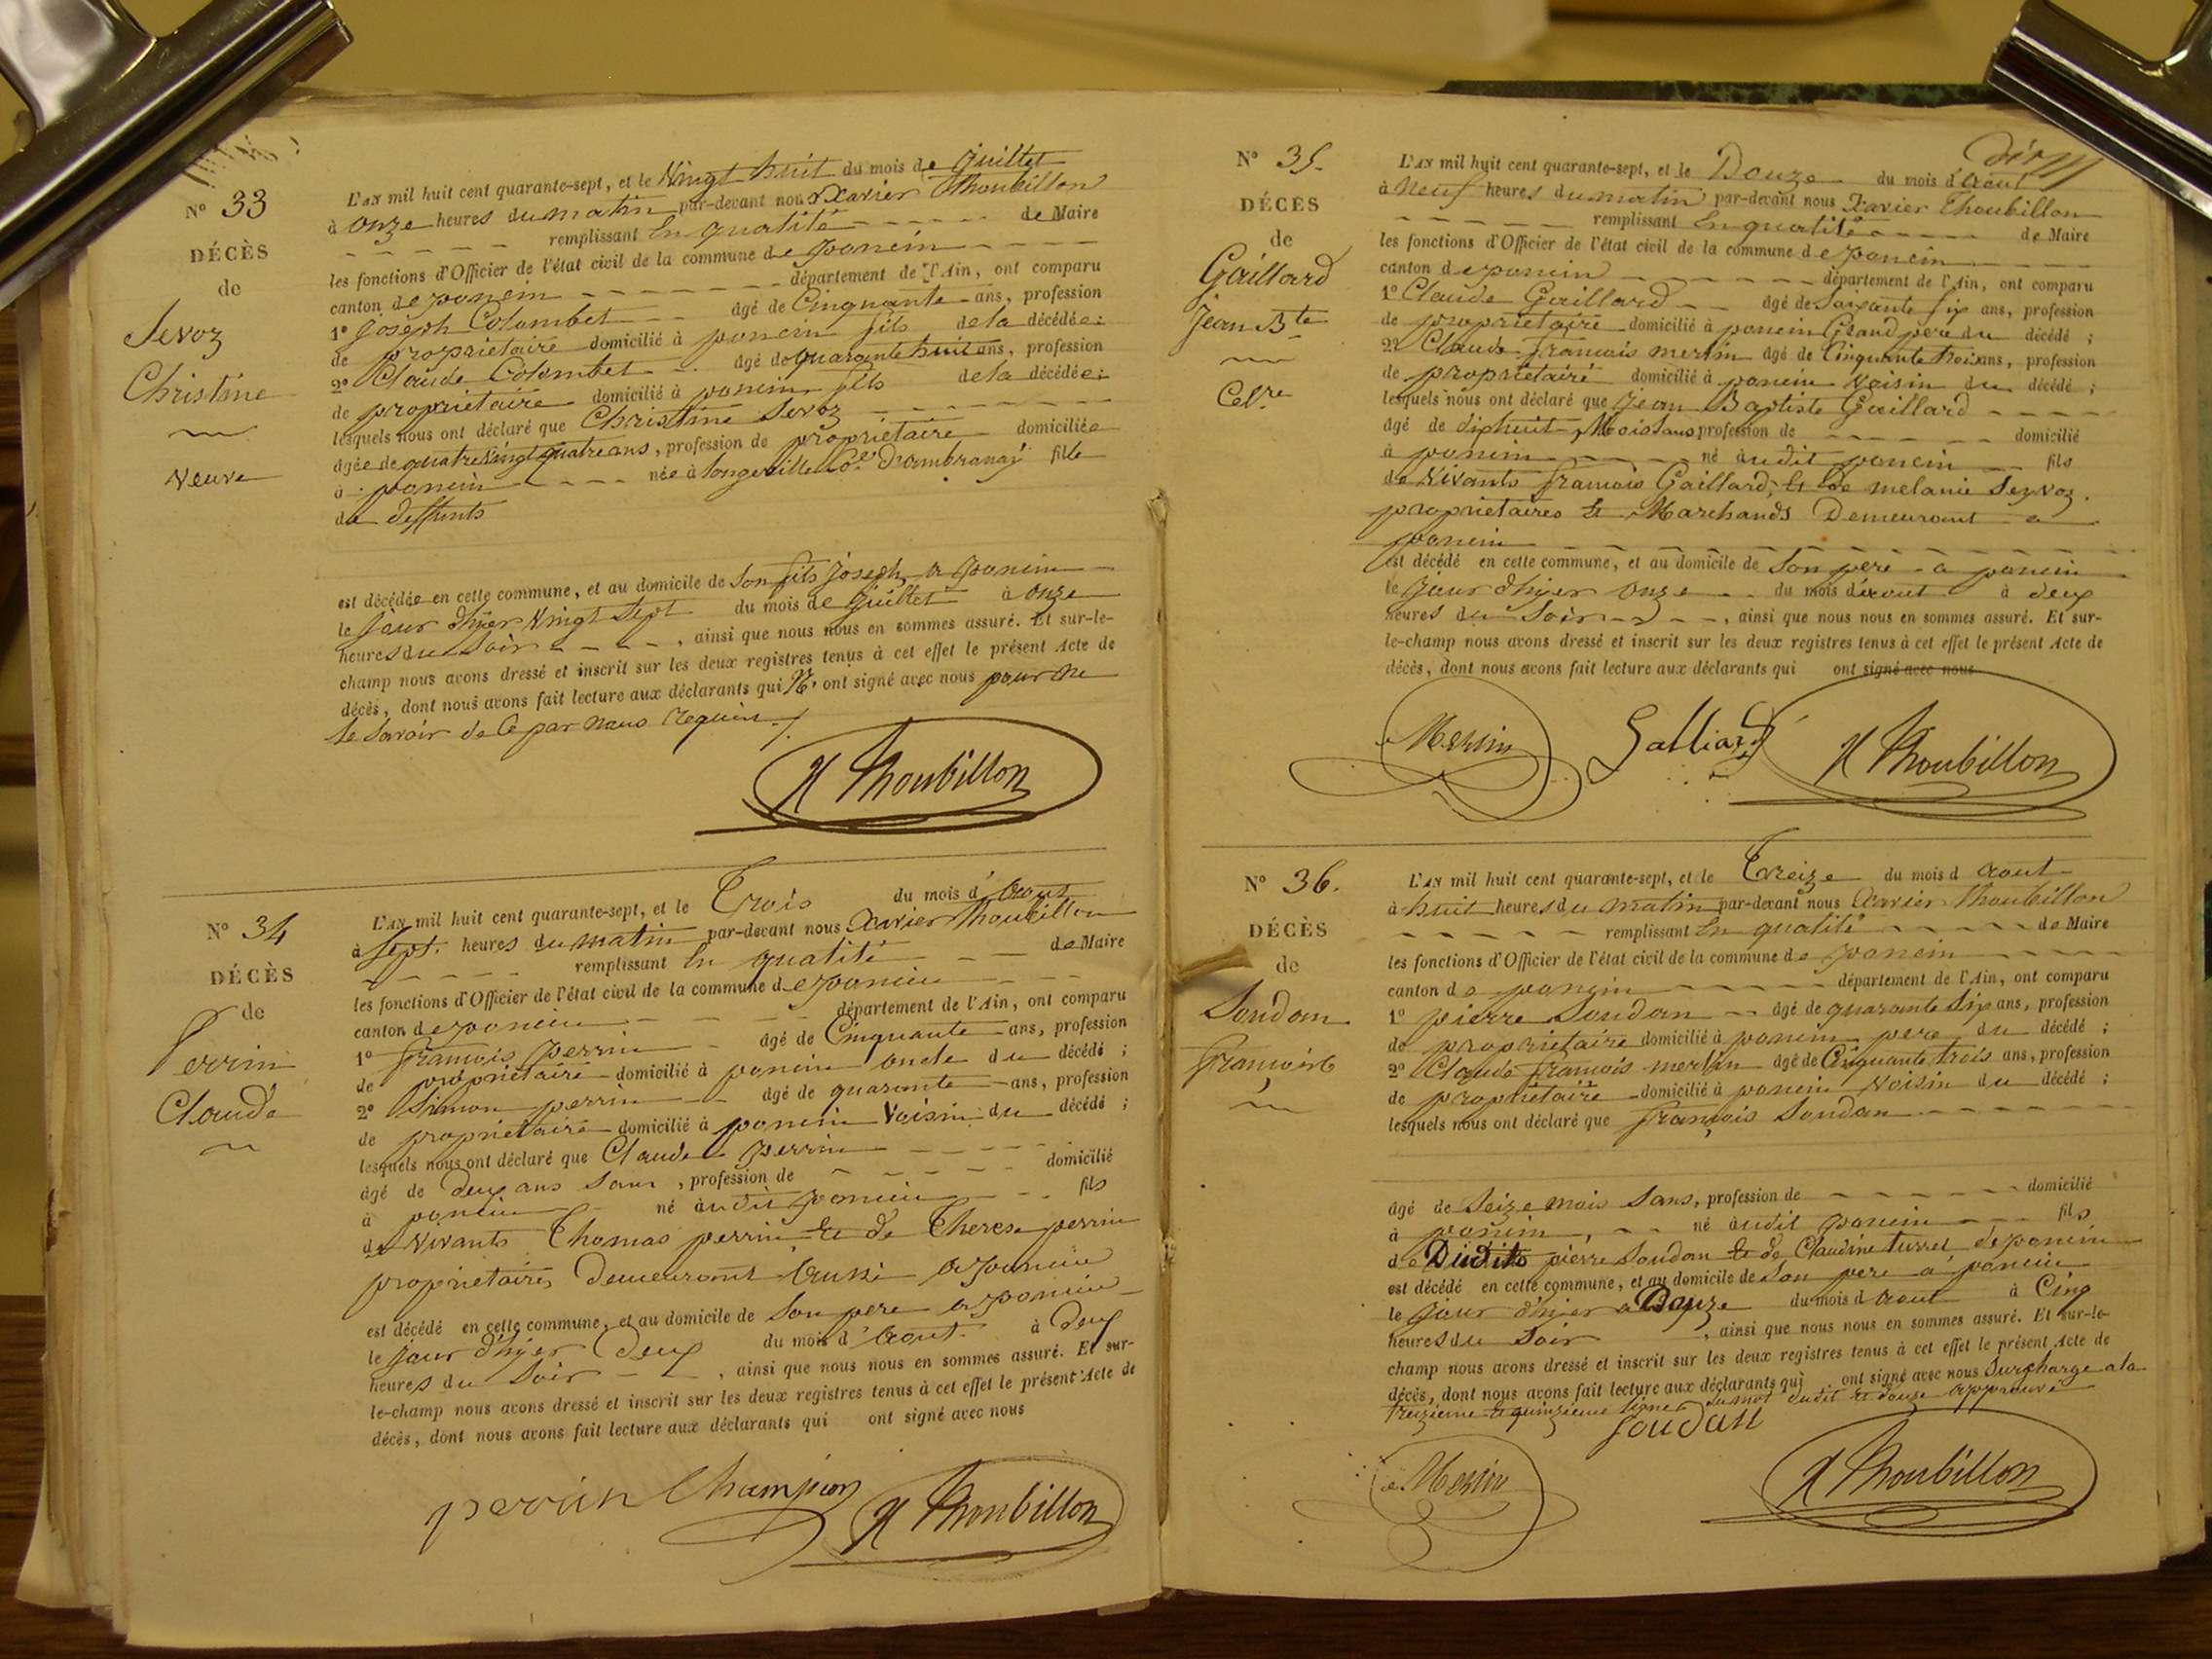 N° 33
DÉCÈS
de
Servoz
Christine
Veuve
L'AN mil huit cent quarante-sept, et le Vingt huit du mois de Juillet
à onze heures du matin par-devant nous Xavier Thoubillon
remplissant En qualité de Maire
les fonctions d'Officier de l'état civil de la commune de poncin
canton de poncin département de l'Ain, ont comparu
1° Joseph Colombet âgé de Cinquante ans, profession
de propriétaire domicilié à poncin fils de la décédée;
2° Claude Colombet âgé de quarante huit ans, profession
de propriétaire domicilié à poncin fils de la décédée;
lesquels nous ont déclaré que Christine Servoz
âgée de quatre Vingt quatre ans, profession de propriétaire domiciliée
à poncin née à longeville Ce d'ambronay fille
de deffunts
est décédée en cette commune, et au domicile de Son fils Joseph, a poncin
le jour d'hyer Vingt Sept du mois de Juillet à onze
heures du Soir, ainsi que nous nous en sommes assuré. Et sur-le-
champ nous avons dressé et inscrit sur les deux registres tenus à cet effet le présent Acte de
décès, dont nous avons fait lecture aux déclarants qui N' ont signé avec nous pour ne
le Savoir de Ce par nous requis ./.
X Thoubillon
N° 34
DÉCÈS
de
Perrin
Claude
L'AN mil huit cent quarante-sept, et le Trois du mois d'Aout
à Sept heures du matin par-devant nous Xavier Thoubillon
remplissant En qualité de Maire
les fonctions d'Officier de l'état civil de la commune de poncin
canton de poncin département de l'Ain, ont comparu
1° françois perrin âgé de Cinquante ans, profession
de propriétaire domicilié à poncin oncle du décédé;
2° Simon perrin âgé de quarante ans, profession
de propriétaire domicilié à poncin Voisin du décédé;
lesquels nous ont déclaré que Claude perrin
âgé de deux ans Sans, profession de domicilié
à poncin né audit poncin fils
de Vivants Thomas perrin et de Therese perrin
propriétaires Demeurant aussi a poncin
est décédé en cette commune, et au domicile de Son pere a poncin
le jour d'hyer Deux du mois d'Aout à Deux
heures du Soir, ainsi que nous nous en sommes assuré. Et sur-
le-champ nous avons dressé et inscrit sur les deux registres tenus à cet effet le présent Acte de
décès, dont nous avons fait lecture aux déclarants qui ont signé avec nous
perrin Champion X Thoubillon
N° 35.
DÉCÈS
de
Gaillard
Jean Bte
Celre
L'AN mil huit cent quarante-sept, et le Douze du mois d'Aout
à Neuf heures du matin par-devant nous Xavier Thoubillon
remplissant En qualité de Maire
les fonctions d'Officier de l'état civil de la commune de poncin
canton de poncin département de l'Ain, ont comparu
1° Claude Gaillard âgé de Soixante six ans, profession
de propriétaire domicilié à poncin Grand pere du décédé;
2° Claude françois merlin âgé de Cinquante trois ans, profession
de propriétaire domicilié à poncin Voisin du décédé;
lesquels nous ont déclaré que Jean Baptiste Gaillard
âgé de dixhuit Mois Sans profession de domicilié
à poncin né audit poncin fils
de Vivants françois Gaillard, et de melanie Servoz.
propriétaires et Marchands Demeurant a
poncin
est décédé en cette commune, et au domicile de Son pere a poncin
le jour d'hyer onze du mois d'aout à deux
heures du Soir, ainsi que nous nous en sommes assuré. Et sur-
le-champ nous avons dressé et inscrit sur les deux registres tenus à cet effet le présent Acte de
décès, dont nous avons fait lecture aux déclarants qui ont signé avec nous
Merlin Galliard X Thoubillon
N° 36.
DÉCÈS
de
Soudan
françois
L'AN mil huit cent quarante-sept, et le Treize du mois d aout
à huit heures du matin par-devant nous Xavier Thoubillon
remplissant En qualité de Maire
les fonctions d'Officier de l'état civil de la commune de poncin
canton de poncin département de l'Ain, ont comparu
1° pierre Soudan âgé de quarante Six ans, profession
de propriétaire domicilié à poncin pere du décédé;
2° Claude françois merlin âgé de Cinquante trois ans, profession
de propriétaire domicilié à poncin Voisin du décédé;
lesquels nous ont déclaré que françois Soudan
âgé de Seize mois Sans, profession de domicilié
à poncin, né audit poncin fils
de Dudit pierre Soudan et de Claudine turrel de poncin
est décédé en cette commune, et au domicile de Son pere a poncin
le jour d'hyer Douze du mois d aout à Cinq
heures du Soir, ainsi que nous nous en sommes assuré. Et sur-le-
champ nous avons dressé et inscrit sur les deux registres tenus à cet effet le présent Acte de
décès, dont nous avons fait lecture aux déclarants qui ont signé avec nous Surcharge a la
treizieme et quinzieme ligne du mot dudit et douze approuvé
Soudan
Merlin X Thoubillon